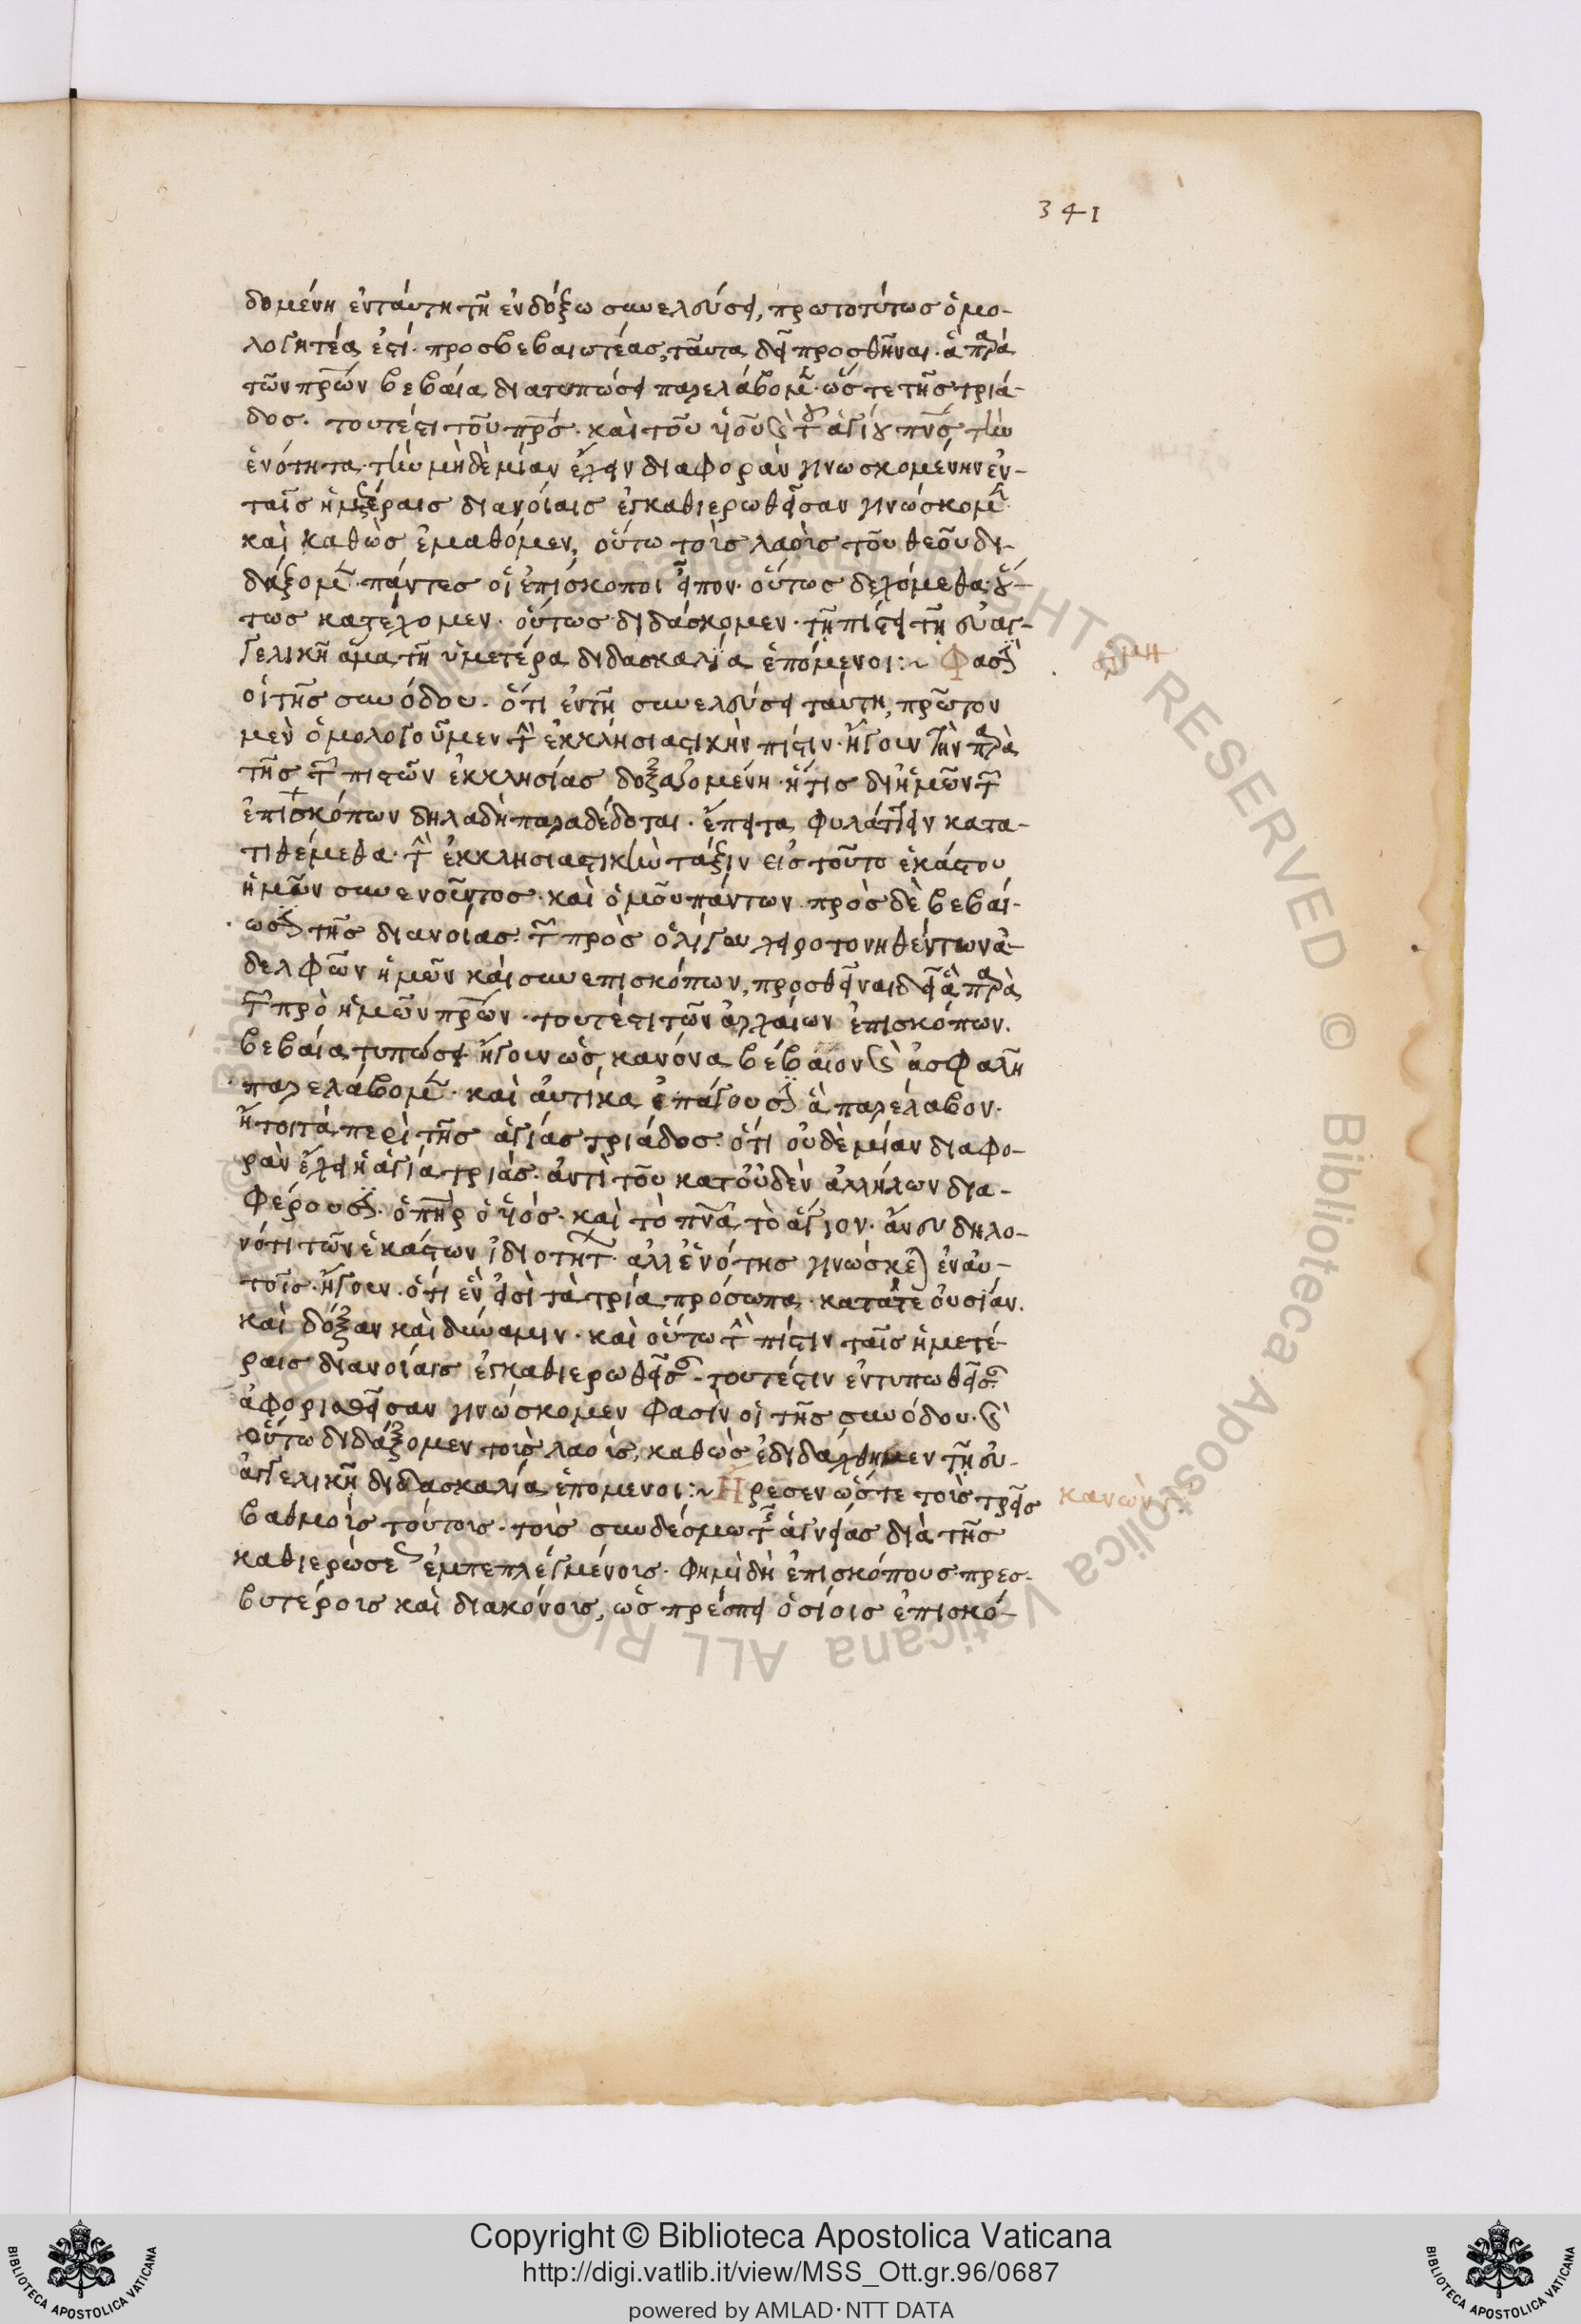 341
δομένη ἐν ταύτη τῆ ἐνδόξω συνελεύσει, πρωτοτύπως ὁμο-
λογητέα ἐστί· προσβεβαιωτέας, ταῦτα δεῖ προσθῆναι· ἃ παρὰ
τῶν πρ̅ων βεβαία διατυπώσει παρελάβομεν· ὥστε τῆς τριά-
δος· τουτέστι τοῦ πρ̅ς· καὶ τοῦ υἱοῦ καὶ τοῦ ἁγίου πν̅ς, τὴν
ἑνότητα· τὴν μηδεμίαν ἔχειν διαφορὰν γινωσκομένην ἐν
ταῖς ἡμετέραις διανοίαις ἐγκαθιερωθεῖσαν γινώσκομεν·
καὶ καθὼς ἐμάθομεν, οὕτω τοῖς λαοῖς τοῦ θεοῦ δι-
δάξομεν· πάντες οἱ ἐπίσκοποι εἶπον· οὕτως δεχόμεθα· οὕ-
τως κατέχομεν· οὕτως διδάσκομεν· τῆ πίστει τῆ εὐαγ-
γελικῆ ἅμα τῆ ὑμετέρα διδασκαλία ἑπόμενοι:~ Φασὶν
ἑρμη
οἱ τῆς συνόδου· ὅτι ἐν τῆ συνελεύσει ταύτη, πρῶτον
μὲν ὁμολογοῦμεν τὴν ἐκκλησιαστικὴν πίστιν· ἤγουν τὴν παρὰ
τῆς τῶν πιστῶν ἐκκλησίας δοξαζομένη· ἥτις δι' ἡμῶν τῶν
ἐπισκόπων δηλαδὴ παραδέδοται· ἔπειτα φυλάττειν κατα-
τιθέμεθα· τὴν ἐκκλησιαστικὴν τάξιν εἰς τοῦτο ἑκάστου
ἡμῶν συναινοῦντος· καὶ ὁμοῦ πάντων· πρὸς δὲ βεβαί-
ωσιν τῆς διανοίας· τῶν πρὸς ὀλίγου χειροτονηθέντων ἀ-
δελφῶν ἡμῶν καὶ συνεπισκόπων, προσθεῖναι δεῖ ἃ παρὰ
τῶν πρὸ ἡμῶν πρ̅ων· τουτέστι τῶν ἀρχαίων ἐπισκόπων.
βεβαία τυπώσει· ἤγουν ὡς κανόνα βέβαιον καὶ ἀσφαλῆ
παρελάβομεν· καὶ αὐτίκα ἐπάγουσιν ἃ παρέλαβον·
ἤτοι τὰ περὶ τῆς ἁγίας τριάδος· ὅτι οὐδεμίαν διαφο-
ρὰν ἔχει ἡ ἁγία τριάς· ἀντὶ τοῦ κατ' οὐδὲν ἀλλήλων δια-
φέρουσιν· ὁ πη̅ρ ὁ υἱός· καὶ τὸ πν̅α τὸ ἅγιον· ἄνευ δηλο-
νότι τῶν ἑκάστων ἰδιοτήτων· ἀλλ' ἑνότης γινώσκεται ἐν αὐ-
τοῖς· ἤγουν· ὅτι ἕν εἰσὶ τὰ τρία πρόσωπα· κατά τε οὐσίαν.
καὶ δόξαν καὶ δύναμιν· καὶ οὕτω τὴν πίστιν ταῖς ἡμετέ-
ραις διανοίαις ἐγκαθιερωθεῖσαν· τουτέστιν ἐντυπωθεῖσαν
ἀφορισθεῖσαν γινώσκομεν φασὶν οἱ τῆς συνόδου· καὶ
οὕτω διδάξομεν τοῖς λαοῖς, καθὼς ἐδιδάχθημεν τῆ εὐ-
αγγελικῆ διδασκαλία ἑπόμενοι:~ Ἤρεσεν ὥστε τοῖς τρεῖς
κανών
βαθμοῖς τούτοις· τοῖς συνδέσμω τῆς ἁγνείας διὰ τῆς
καθιερώσεως ἐμπεπλεγμένοις· φημὶ δὴ ἐπισκόπους πρεσ-
βυτέροις καὶ διακόνοις, ὡς πρέπει ὁσίοις ἐπισκό-
Copyright © Biblioteca Apostolica Vaticana
http://digi.vatlib.it/view/MSS_Ott.gr.96/0687
powered by AMLAD·NTT DATA